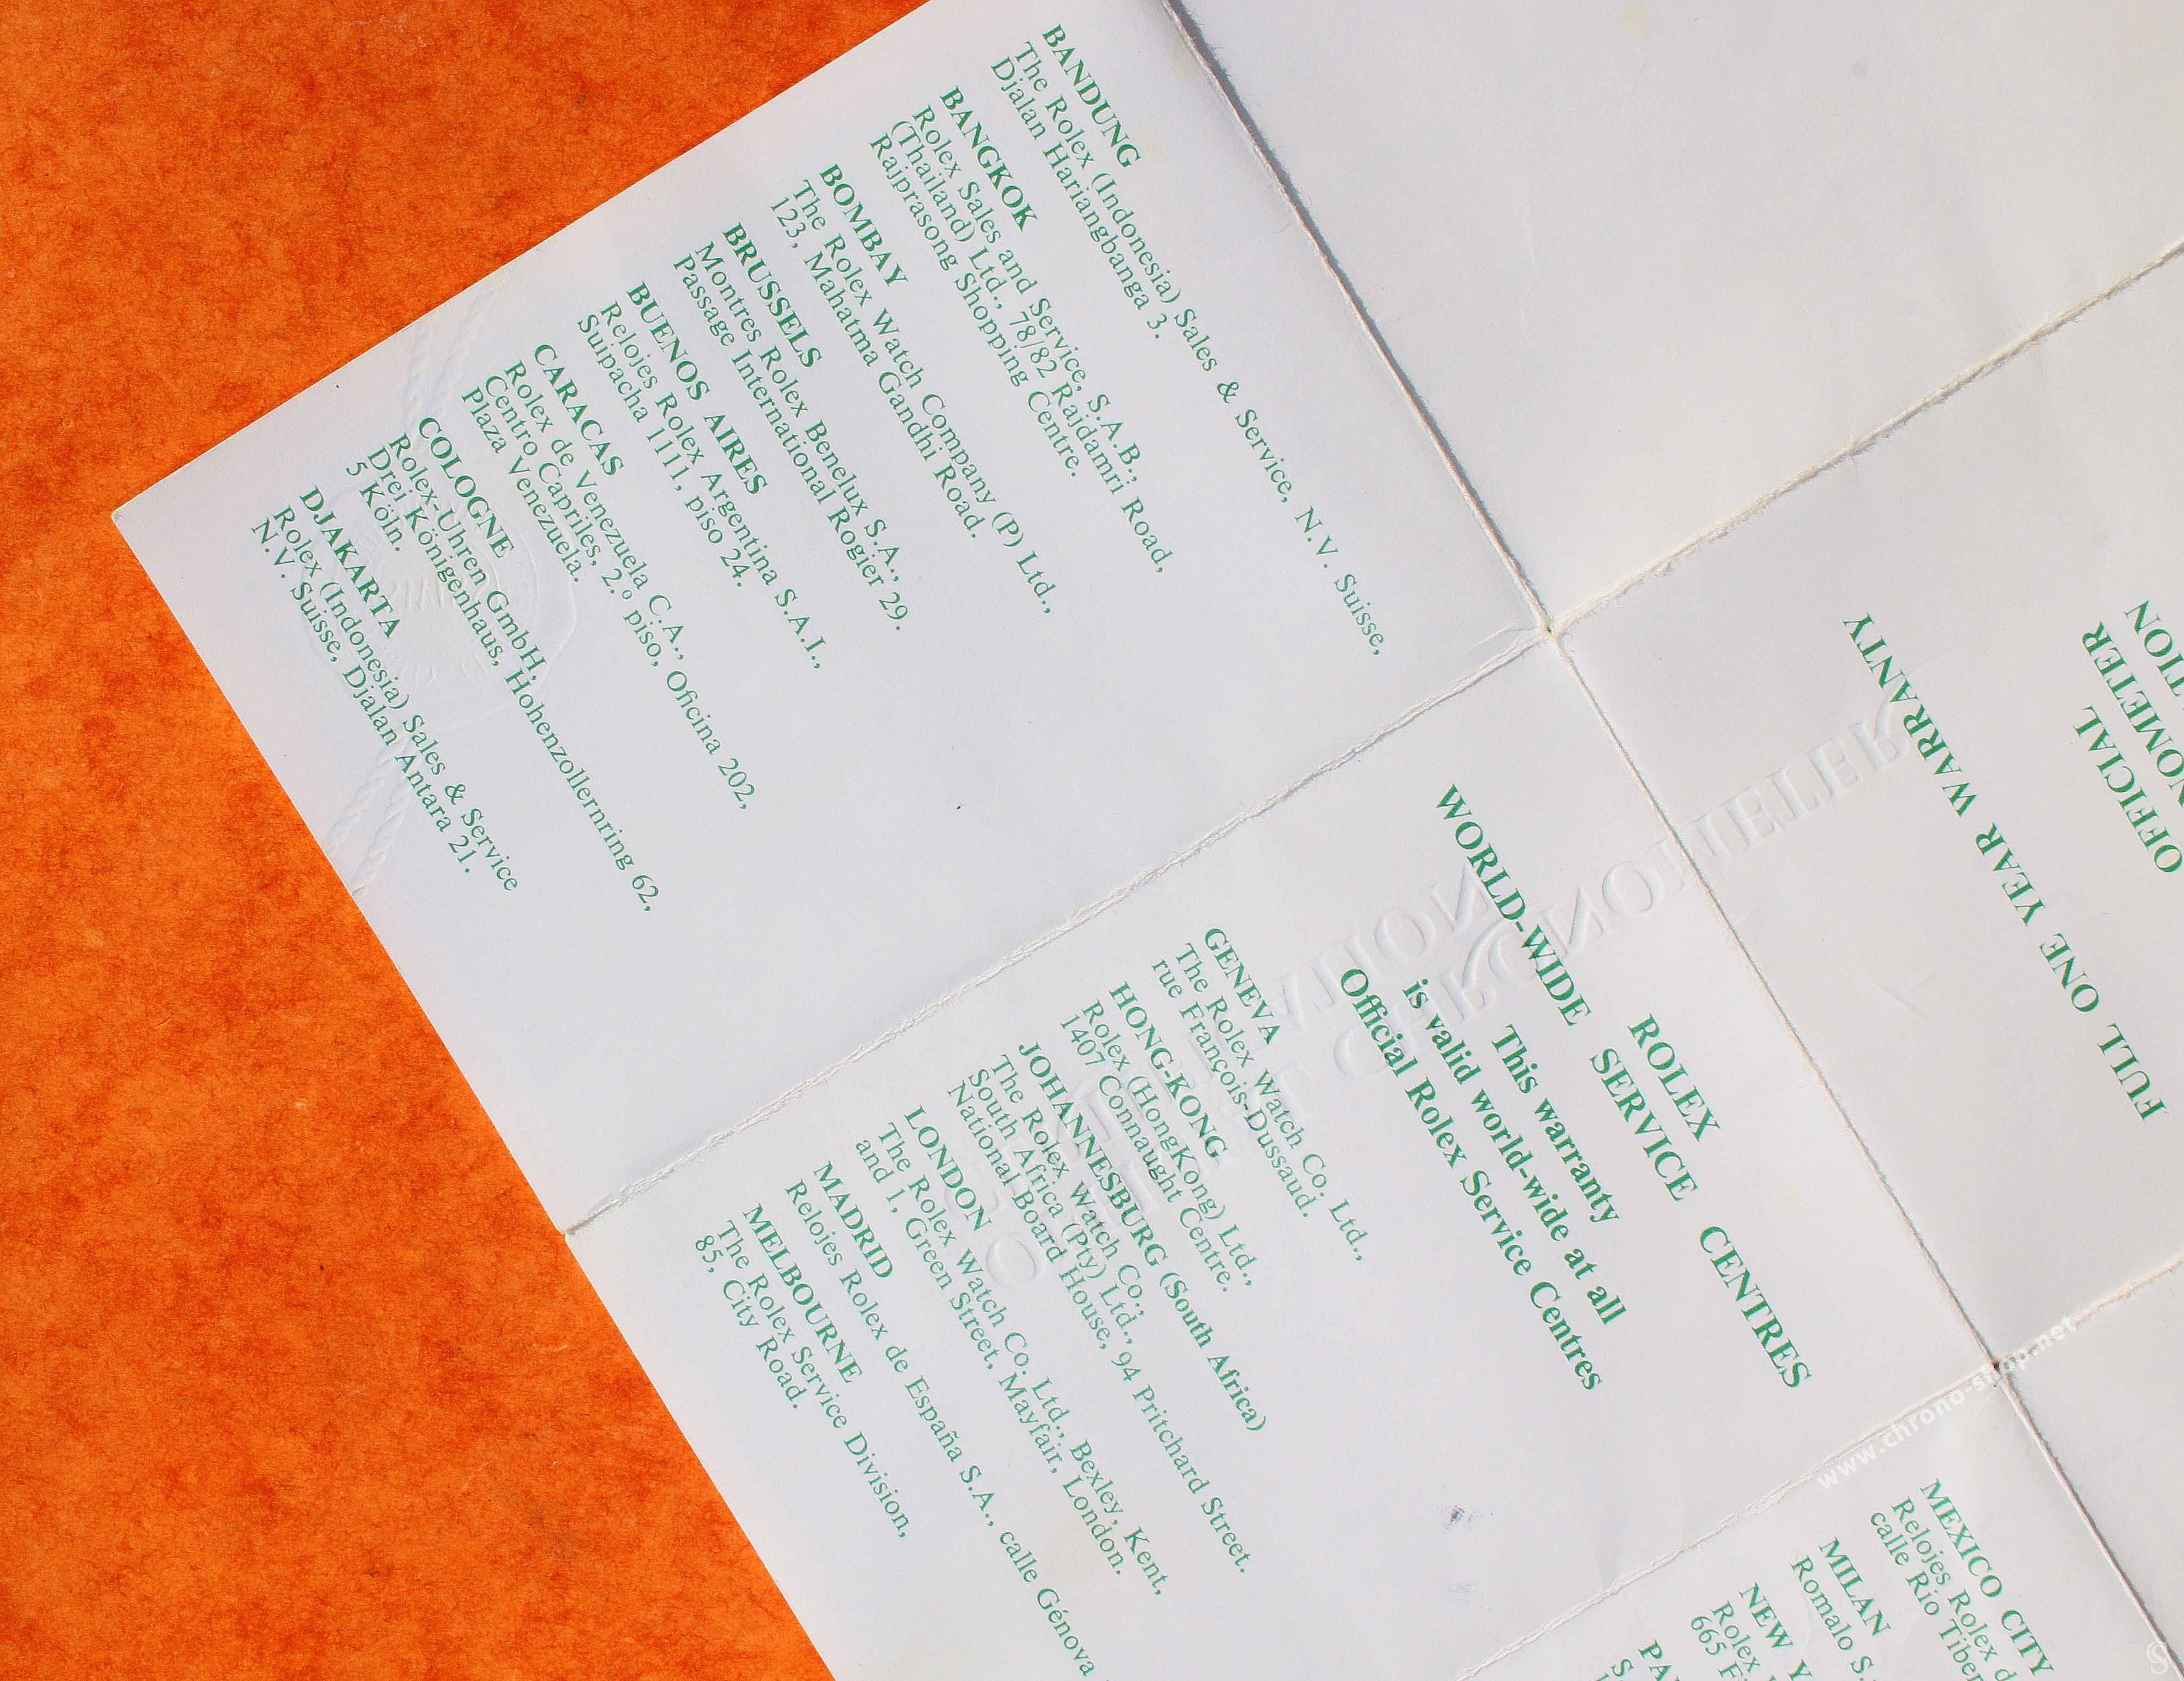 BANDUNG
The Rolex (Indonesia) Sales & Service, N.V. Suisse,
Djalan Hariangbanga 3.
BANGKOK
Rolex Sales and Service, S.A.B.,
(Thailand) Ltd., 78/82 Rajdamri Road,
Rajprasong Shopping Centre.
BOMBAY
The Rolex Watch Company (P) Ltd.,
123, Mahatma Gandhi Road.
BRUSSELS
Montres Rolex Benelux S.A.,
Passage International Rogier 29.
BUENOS AIRES
Relojes Rolex Argentina S.A.I.,
Suipacha 1111, piso 24.
CARACAS
Rolex de Venezuela C.A.,
Centro Capriles, 2.º piso, Oficina 202,
Plaza Venezuela.
COLOGNE
Rolex-Uhren GmbH,
Drei Königenhaus, Hohenzollernring 62,
5 Köln.
DJAKARTA
Rolex (Indonesia) Sales & Service
N.V. Suisse, Djalan Antara 21.
ROLEX
WORLD-WIDE SERVICE CENTRES
This warranty
is valid world-wide at all
Official Rolex Service Centres
GENEVA
The Rolex Watch Co. Ltd.,
rue François-Dussaud.
HONG-KONG
Rolex (HongKong) Ltd.,
1407 Connaught Centre.
JOHANNESBURG (South Africa)
The Rolex Watch Co.,
South Africa (Pty) Ltd.,
National Board House, 94 Pritchard Street.
LONDON
The Rolex Watch Co. Ltd., Bexley, Kent,
and 1, Green Street, Mayfair, London.
MADRID
Relojes Rolex de España S.A., calle Génova
MELBOURNE
The Rolex Service Division,
85, City Road.
MEXICO CITY
Relojes Rolex d
calle Rio Tiber
MILAN
Romalo S.
NEW Y
Rolex
665 F
OFFICIAL
FULL ONE YEAR WARRANTY
www.chrono-shop.net